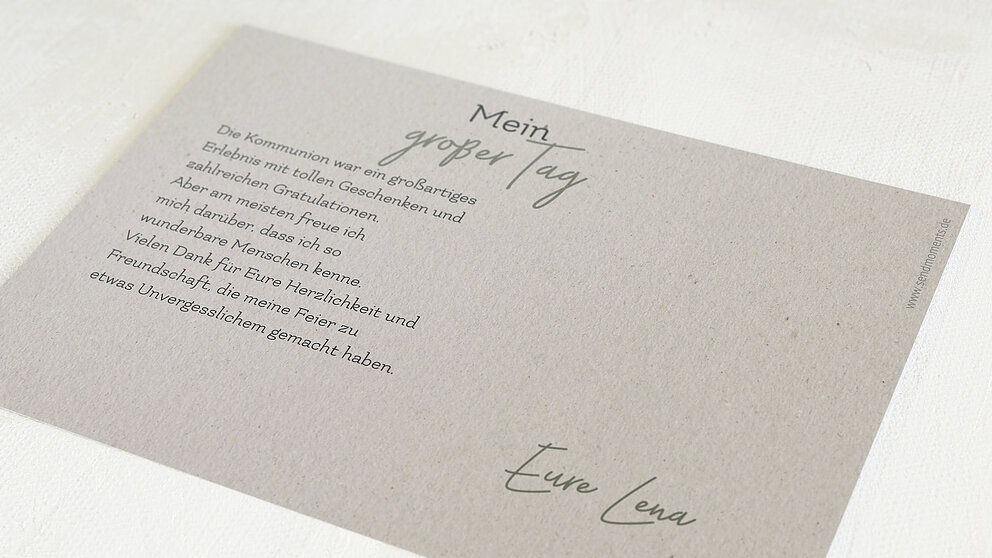 Mein
großer Tag
Die Kommunion war ein großartiges
Erlebnis mit tollen Geschenken und
zahlreichen Gratulationen.
Aber am meisten freue ich
mich darüber, dass ich so
wunderbare Menschen kenne.
Vielen Dank für Eure Herzlichkeit und
Freundschaft, die meine Feier zu
etwas Unvergesslichem gemacht haben.
Eure Lena
www.sendmoments.de